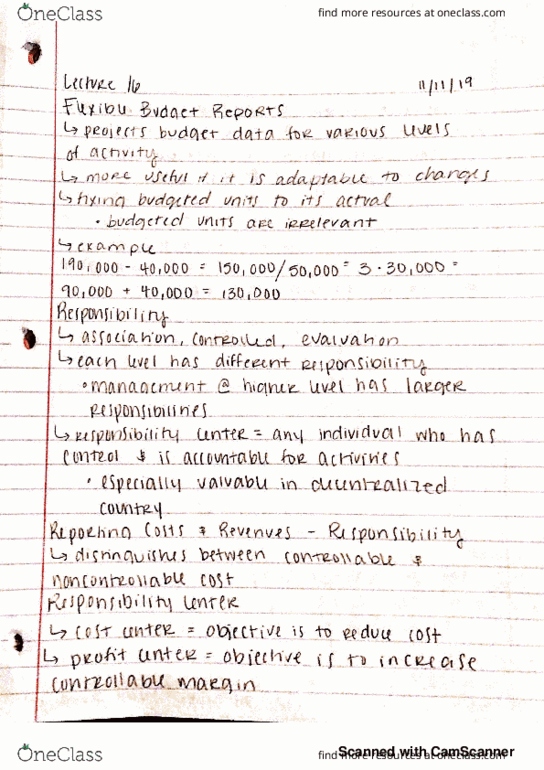 OneClass
find more resources at oneclass.com
Lecture 16
11/11/19
Flexible Budget Reports
↳ projects budget data for various levels
of activity
↳ more useful if it is adaptable to changes
↳ fixing budgeted units to its actual
• budgeted units are irrelevant
↳ example
190,000 - 40,000 = 150,000/50,000 = 3 · 30,000 =
90,000 + 40,000 = 130,000
Responsibility
↳ association, controlled, evaluation
↳ each level has different responsibility
• management @ higher level has larger
responsibilities
↳ responsibility center = any individual who has
control & is accountable for activities
• especially valuable in decentralized
country
Reporting Costs & Revenues - Responsibility
↳ distinguishes between controllable &
noncontrollable cost
Responsibility Center
↳ cost center = objective is to reduce cost
↳ profit center = objective is to increase
controllable margin
OneClass
find more resources at oneclass.com
Scanned with CamScanner